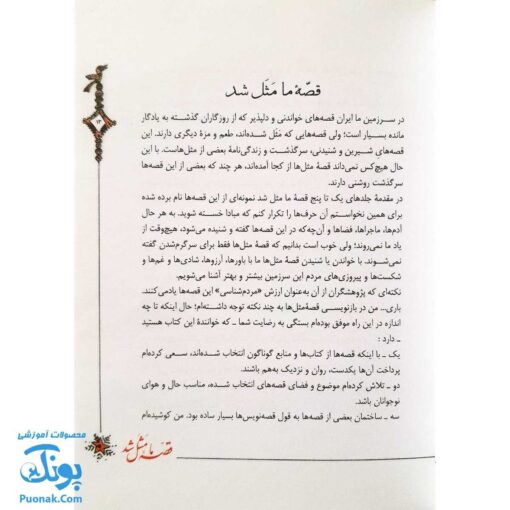 قصّهٔ ما مَثَل شد
۱۳
در سرزمین ما ایران قصه‌های خواندنی و دلپذیر که از روزگاران گذشته به یادگار
مانده بسیار است؛ ولی قصه‌هایی که مَثَل شده‌اند، طعم و مزهٔ دیگری دارند. این
قصه‌های شیرین و شنیدنی، سرگذشت و زندگی‌نامهٔ بعضی از مثل‌هاست. با این
حال هیچ‌کس نمی‌داند قصهٔ مثل‌ها از کجا آمده‌اند، هر چند که بعضی از این قصه‌ها
سرگذشت روشنی دارند.
در مقدمهٔ جلدهای یک تا پنج قصهٔ ما مثل شد نمونه‌ای از این قصه‌ها نام برده شده
برای همین نخواستم آن حرف‌ها را تکرار کنم که مبادا خسته شوید. به هر حال
آدم‌ها، ماجراها، فضاها و آن‌چه‌که در این قصه‌ها گفته و شنیده می‌شود، هیچ‌وقت از
یاد ما نمی‌روند؛ ولی خوب است بدانیم که قصهٔ مثل‌ها فقط برای سرگرم‌شدن گفته
نمی‌شوند. با خواندن یا شنیدن قصهٔ مثل‌ها ما با باورها، آرزوها، شادی‌ها و غم‌ها و
شکست‌ها و پیروزی‌های مردم این سرزمین بیشتر و بهتر آشنا می‌شویم.
نکته‌ای که پژوهشگران از آن به‌عنوان ارزش «مردم‌شناسی» این قصه‌ها یادمی‌کنند.
باری... من در بازنویسی قصهٔ‌مثل‌ها به چند نکته توجه داشته‌ام؛ حال اینکه تا چه
اندازه در این راه موفق بوده‌ام بستگی به رضایت شما ـ که خوانندهٔ این کتاب هستید
ـ دارد:
یک ـ با اینکه قصه‌ها از کتاب‌ها و منابع گوناگون انتخاب شده‌اند، سعی کرده‌ام
پرداخت آن‌ها یکدست، روان و نزدیک به‌هم باشند.
دو ـ تلاش کرده‌ام موضوع و فضای قصه‌های انتخاب شده، مناسب حال و هوای
نوجوانان باشد.
سه ـ ساختمان بعضی از قصه‌ها به قول قصه‌نویس‌ها بسیار ساده بود. من کوشیده‌ام
قصهٔ ما مثل شد
محصولات آموزشی
پونک
Puonak.Com